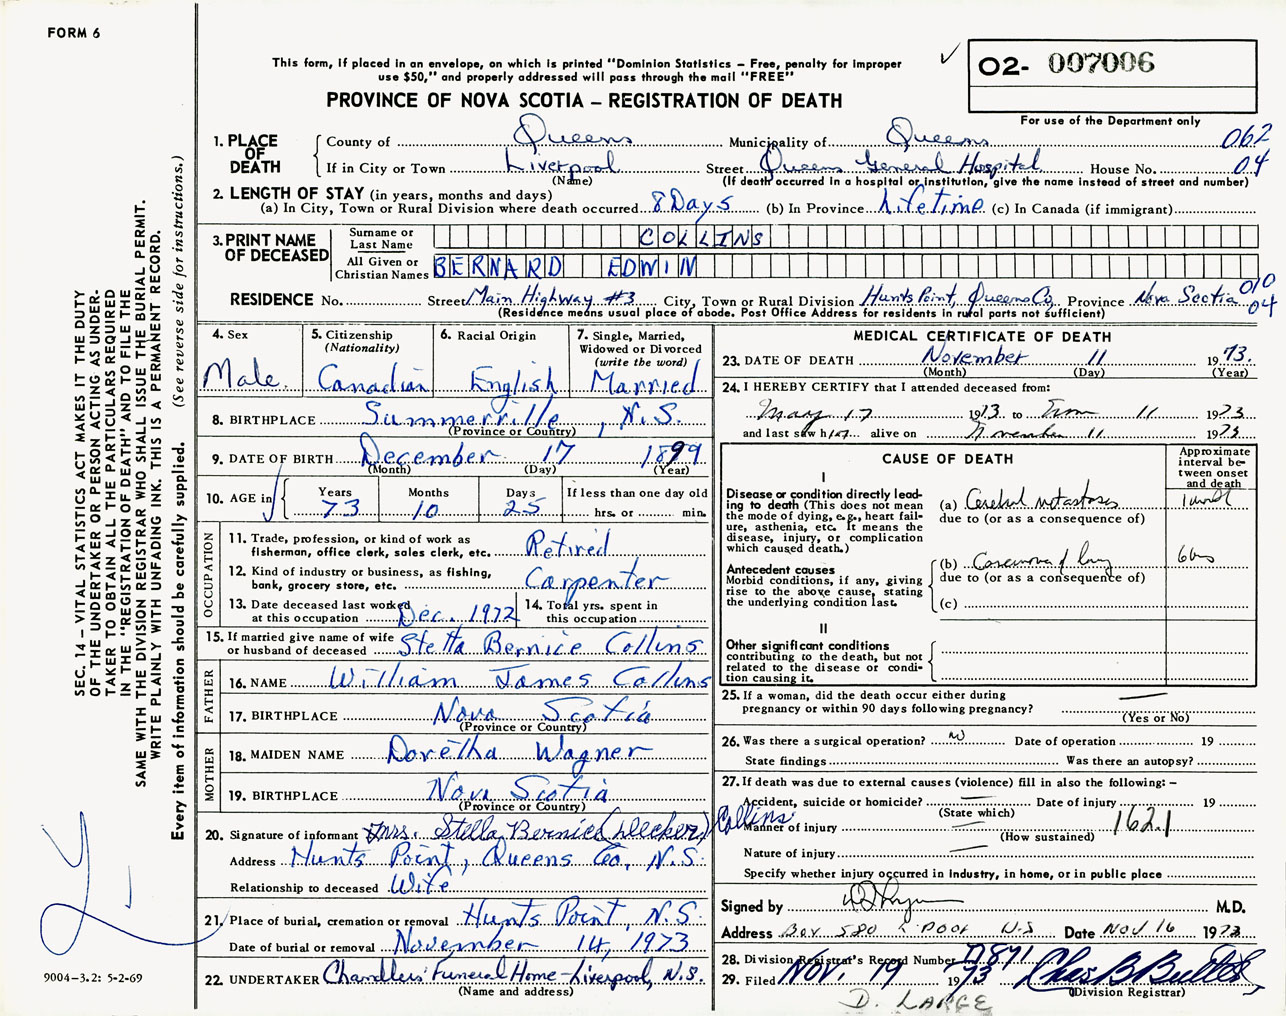 FORM 6
This form, if placed in an envelope, on which is printed "Dominion Statistics – Free, penalty for improper
use $50," and properly addressed will pass through the mail "FREE"
PROVINCE OF NOVA SCOTIA – REGISTRATION OF DEATH
✓ 02- 007006
For use of the Department only
1. PLACE OF DEATH County of Queens Municipality of Queens 062
If in City or Town Liverpool Street Queens General Hospital House No. 04
(Name) (If death occurred in a hospital or institution, give the name instead of street and number)
2. LENGTH OF STAY (in years, months and days)
(a) In City, Town or Rural Division where death occurred 8 Days (b) In Province Lifetime (c) In Canada (if immigrant)
3. PRINT NAME OF DECEASED Surname or Last Name COLLINS
All Given or Christian Names BERNARD EDWIN
RESIDENCE No. Street Main Highway #3 City, Town or Rural Division Hunts Point, Queens Co. Province Nova Scotia 010 04
(Residence means usual place of abode. Post Office Address for residents in rural parts not sufficient)
4. Sex Male.
5. Citizenship (Nationality) Canadian
6. Racial Origin English
7. Single, Married, Widowed or Divorced (write the word) Married
8. BIRTHPLACE Summerville, N.S.
(Province or Country)
9. DATE OF BIRTH December 17 1899
(Month) (Day) (Year)
10. AGE in Years 73 Months 10 Days 25 If less than one day old hrs. or min.
OCCUPATION
11. Trade, profession, or kind of work as fisherman, office clerk, sales clerk, etc. Retired
12. Kind of industry or business, as fishing, bank, grocery store, etc. Carpenter
13. Date deceased last worked at this occupation Dec. 1972 14. Total yrs. spent in this occupation
15. If married give name of wife or husband of deceased Stella Bernice Collins
FATHER
16. NAME William James Collins
17. BIRTHPLACE Nova Scotia
(Province or Country)
MOTHER
18. MAIDEN NAME Doretha Wagner
19. BIRTHPLACE Nova Scotia
(Province or Country)
20. Signature of informant Mrs. Stella Bernice (Decker) Collins
Address Hunts Point, Queens Co, N.S.
Relationship to deceased Wife
21. Place of burial, cremation or removal Hunts Point, N.S.
Date of burial or removal November 14, 1973
22. UNDERTAKER Chandlers' Funeral Home - Liverpool, N.S.
(Name and address)
MEDICAL CERTIFICATE OF DEATH
23. DATE OF DEATH November 11 1973.
(Month) (Day) (Year)
24. I HEREBY CERTIFY that I attended deceased from:
May 17 1973 to 11 1973
and last saw him alive on November 11 1973
CAUSE OF DEATH
Approximate interval between onset and death
I
Disease or condition directly leading to death (This does not mean the mode of dying, e.g., heart failure, asthenia, etc. It means the disease, injury, or complication which caused death.)
(a) Cerebral metastases
due to (or as a consequence of)
Antecedent causes
Morbid conditions, if any, giving rise to the above cause, stating the underlying condition last.
(b) Carcinoma of lung
due to (or as a consequence of)
(c)
II
Other significant conditions
contributing to the death, but not related to the disease or condition causing it.
25. If a woman, did the death occur either during pregnancy or within 90 days following pregnancy? —
(Yes or No)
26. Was there a surgical operation? Date of operation 19
State findings Was there an autopsy?
27. If death was due to external causes (violence) fill in also the following: –
Accident, suicide or homicide? — Date of injury 19
(State which)
Manner of injury — 162.1
(How sustained)
Nature of injury —
Specify whether injury occurred in industry, in home, or in public place
Signed by M.D.
Address Box 580 L'POOL N.S Date Nov 16 1973
28. Division Registrar's Record Number
29. Filed Nov. 19 1973 Chas B Butler
(Division Registrar)
D. LARGE
SEC. 14 – VITAL STATISTICS ACT MAKES IT THE DUTY
OF THE UNDERTAKER OR PERSON ACTING AS UNDER-
TAKER TO OBTAIN ALL THE PARTICULARS REQUIRED
IN THE "REGISTRATION OF DEATH" AND TO FILE THE
SAME WITH THE DIVISION REGISTRAR WHO SHALL ISSUE THE BURIAL PERMIT.
WRITE PLAINLY WITH UNFADING INK. THIS IS A PERMANENT RECORD.
Every item of information should be carefully supplied. (See reverse side for instructions.)
9004–3.2: 5-2-69